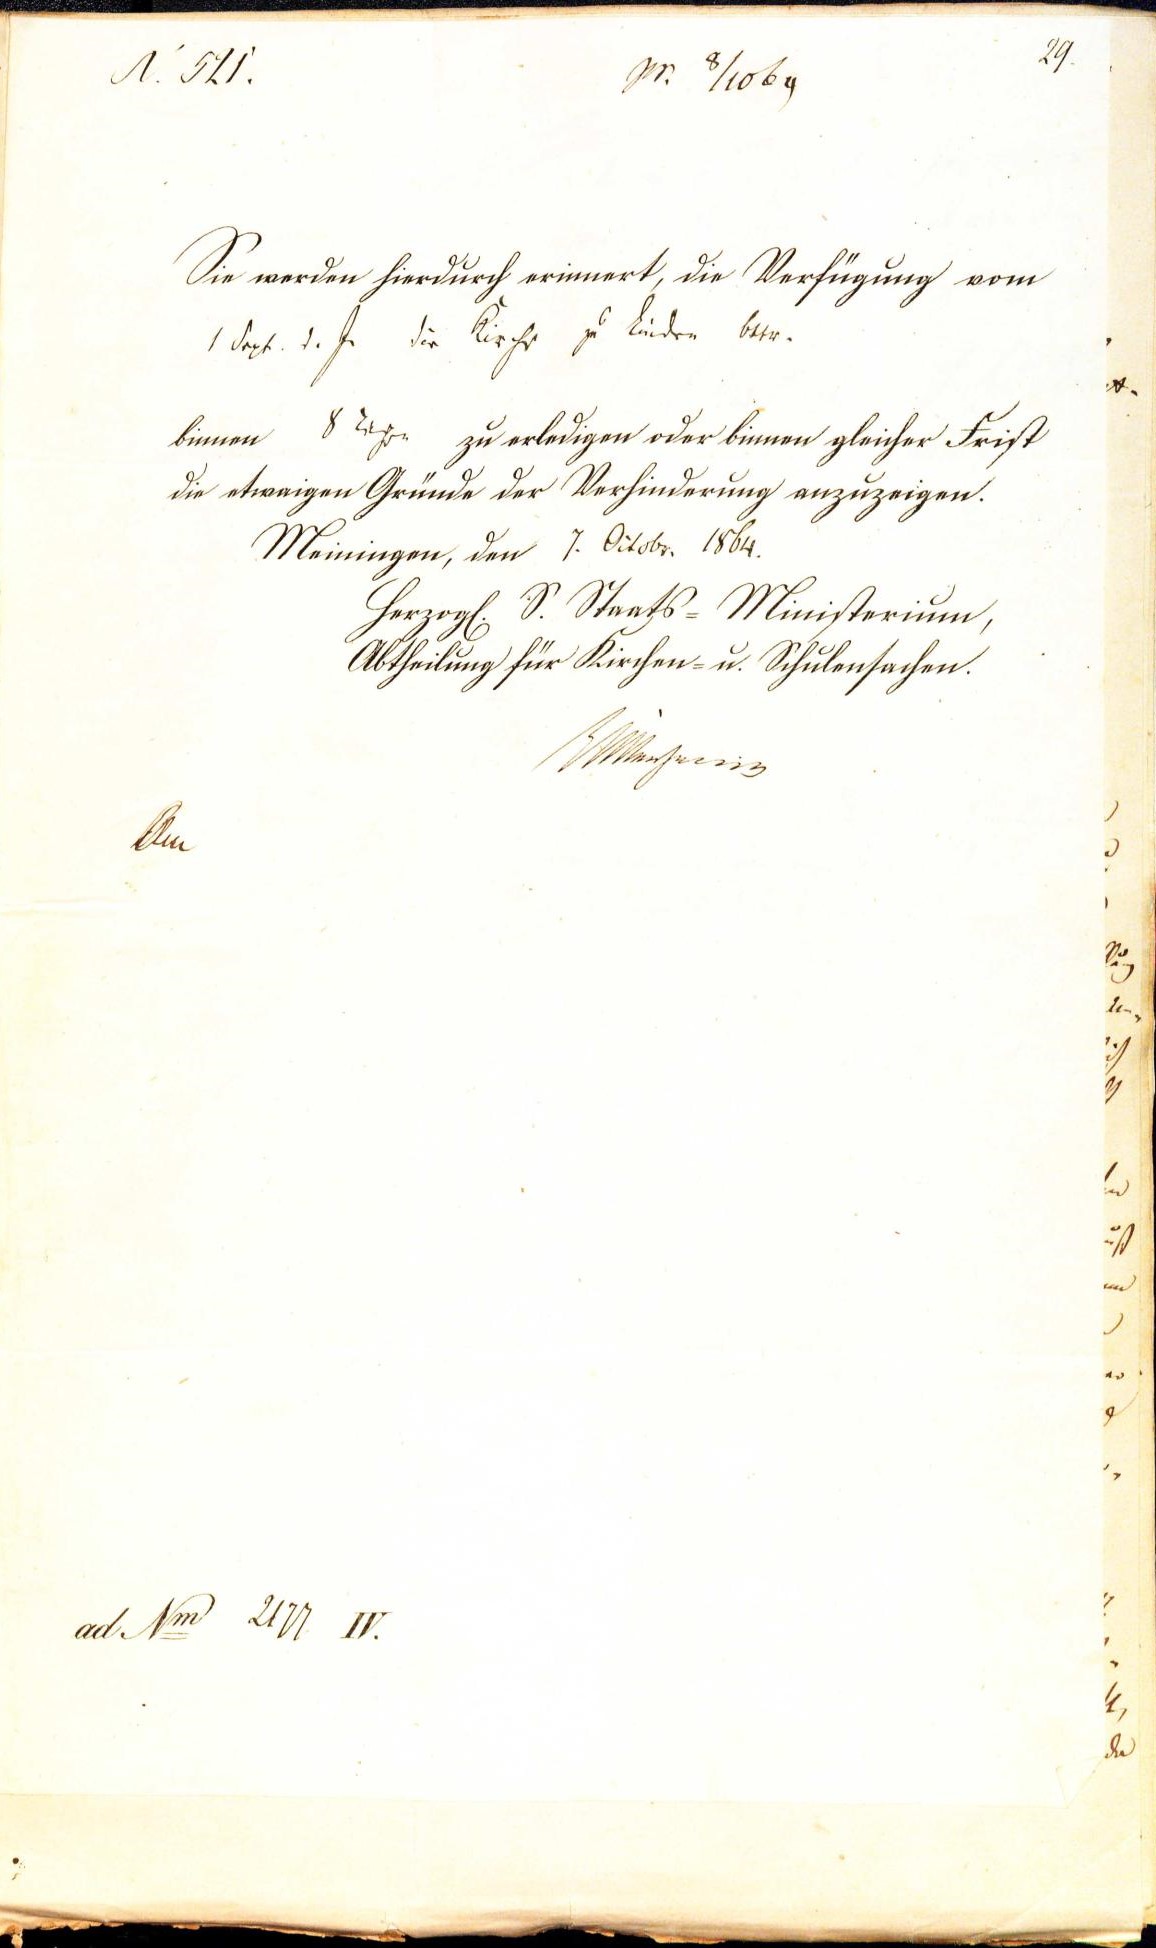 N. 521.
pr. 8/10 64
29.
Sie werden hierdurch erinnert, die Verfügung vom
1 Sept. d. J. die Kirche zu Linden betr.
binnen 8 Tagen zu erledigen oder binnen gleicher Frist
die etwaigen Gründe der Verhinderung anzuzeigen.
Meiningen, den 7. Octobr. 1864.
Herzogl. S. Staats-Ministerium,
Abtheilung für Kirchen- u. Schulensachen.
An
ad Nm 2177 IV.